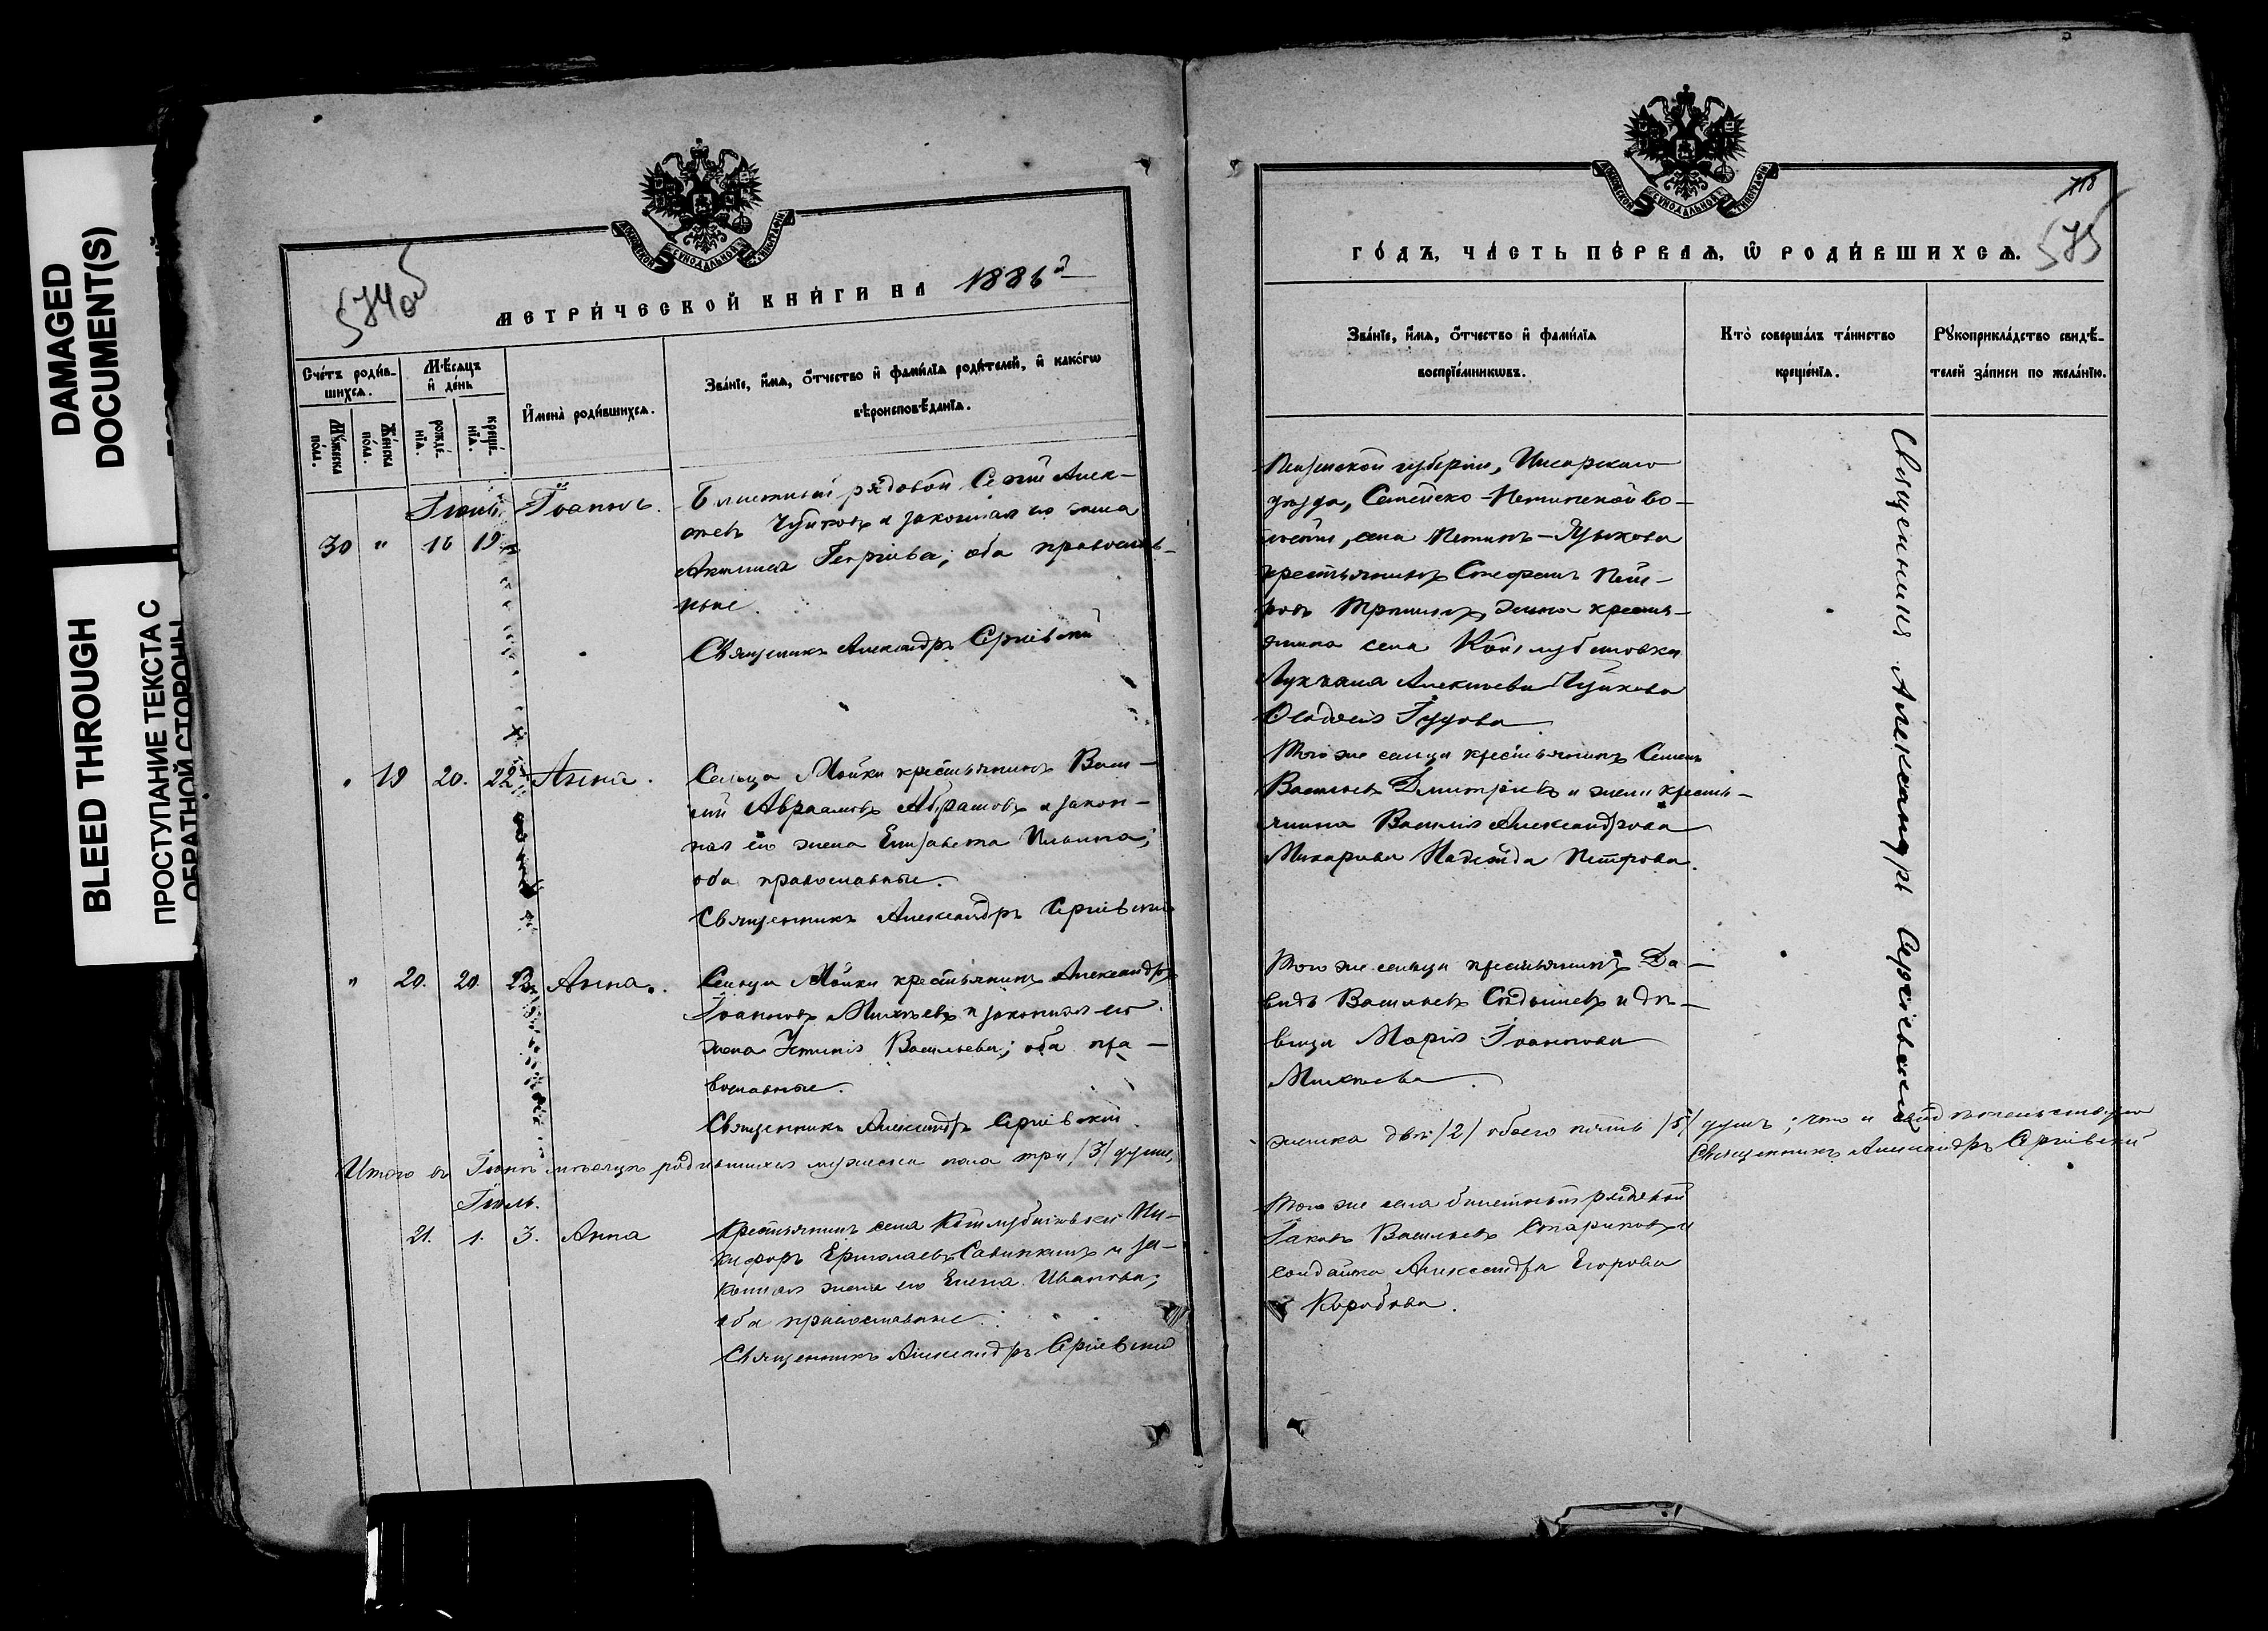 DAMAGED
DOCUMENT(S)
BLEED THROUGH
ПРОСТУПАНИЕ ТЕКСТА С
ОБРАТНОЙ СТОРОНЫ
574 об
МЕТРИ́ЧЕСКОЙ КНИ́ГИ НА 1886й
Сче́тъ роди́в-
шихсѧ.
Мꙋ́жеска по́ла.
Же́нска по́ла.
Мѣ́сѧцъ
и҆ де́нь
рожде́-
нїѧ.
креще́-
нїѧ.
И҆мена̀ роди́вшихсѧ.
Зва́нїе, и҆́мѧ, ѻ҆́тчество и҆ фами́лїѧ роди́телей, и҆ како́гѡ
вѣроисповѣ́данїѧ.
Іюнь
30 " 16 19
Іоаннъ.
Билетный рядовой Сергій Алек-
законная его жена
оба православ-
ные.
Священникъ Александръ Сергіевскій
" 19 20. 22 Анна.
Сельца Мойки крестьянинъ Васи-
лій Авраамовъ Абрамовъ и закон-
ная его жена Елизавета Ильина;
оба православные.
Священникъ Александръ Сергіевскій
" 20. 20. 22 Анна.
Сельца Мойки крестьянинъ Александръ
Іоанновъ и законная его
жена Устинія Васильева; оба пра-
вославные.
Священникъ Александръ Сергіевскій.
Итого въ Іюнѣ мѣсяцѣ родившихся мужеска пола три /3/ души,
Іюль.
21. 1. 3. Анна
Крестьянинъ села Ни-
кифоръ Ермолаевъ Савинкинъ и за-
конная жена его Елена Иванова;
оба православные.
Священникъ Александръ Сергіевскій
718
575
ГО́ДЪ, ЧА́СТЬ ПЕ́РВАѦ, Ѡ҆ РОДИ́ВШИХСѦ.
Зва́нїе, и҆́мѧ, ѻ҆́тчество и҆ фами́лїѧ
воспрїе́мникѡвъ.
Кто̀ соверша́лъ та́инство
креще́нїѧ.
Рꙋкоприкла́дство свидѣ́-
телей за́писи по жела́нїю.
Пензенской губерніи, Инсарскаго
уѣзда, во-
лости, села
крестьянинъ Стефанъ Пет-
ровъ жена крестья-
нина села
Алексѣева
Того же сельца крестьянинъ Семенъ
Васильевъ Дмитріевъ и жена кресть-
янина Василія Александрова
Макарова Надежда Петрова.
Того же сельца крестьянинъ Да-
видъ Васильевъ и дѣ-
вица Марія Іоаннова
женска двѣ /2/ обоего пять /5/ душъ; что и свидѣтельствую
Священникъ Александръ Сергіевскій
Того же села билетный рядовой
Іаковъ Васильевъ Стариковъ и
солдатка Александра Егорова
Коробова.
Священникъ Александръ Сергіевскій